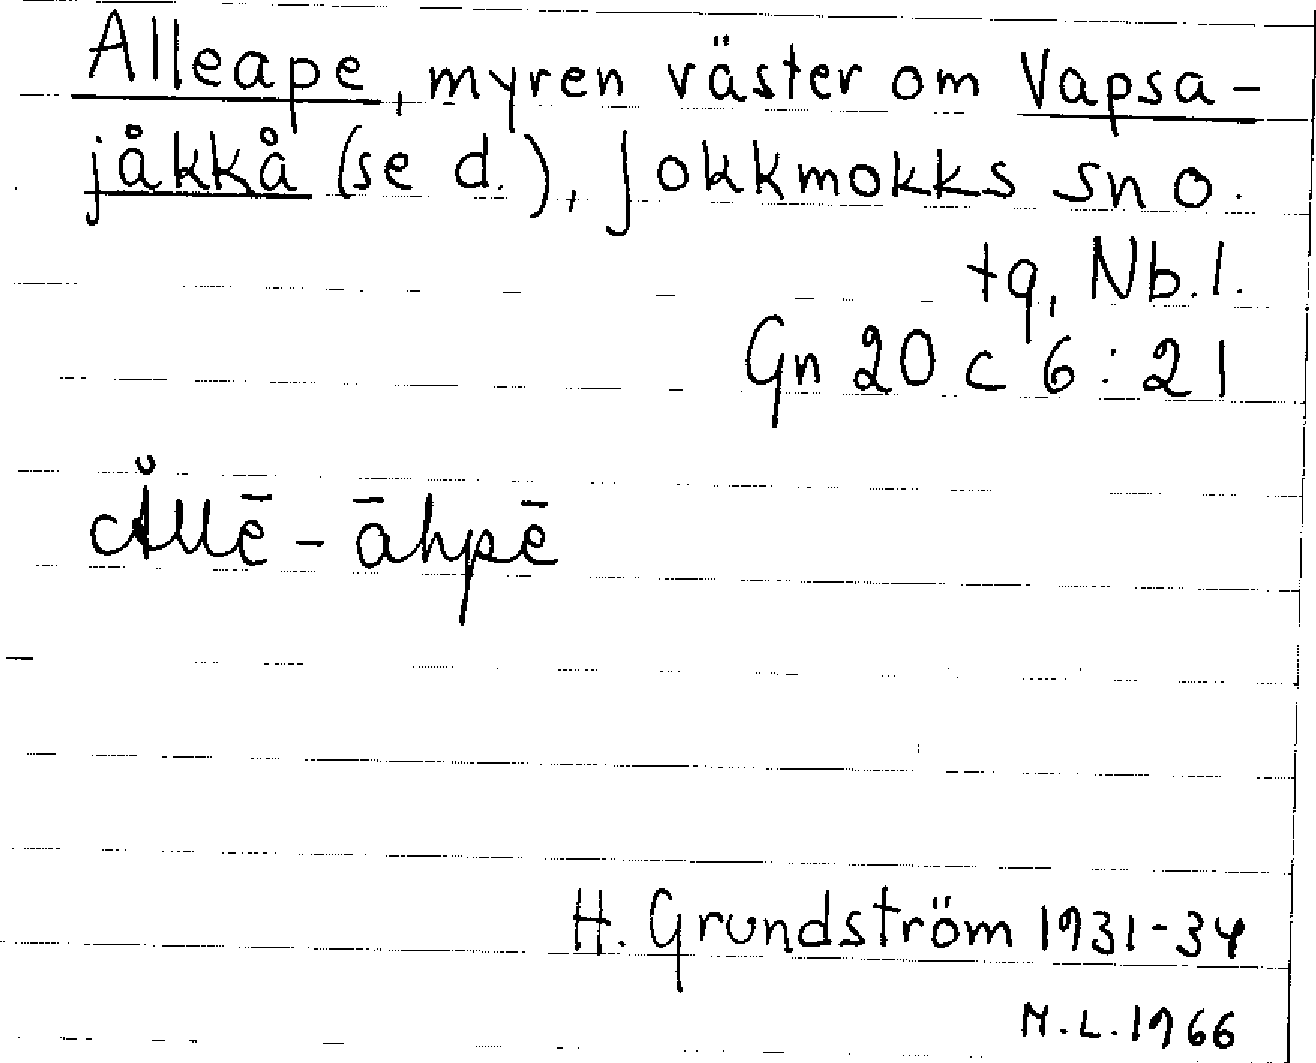 Alleape, myren väster om Vapsa-
jåkkå (se d.), Jokkmokks sn o.
tg, Nb.l.
Gn 20 c 6:21
Ǎllē-āhpē
H. Grundström 1931-34
M.L.1966